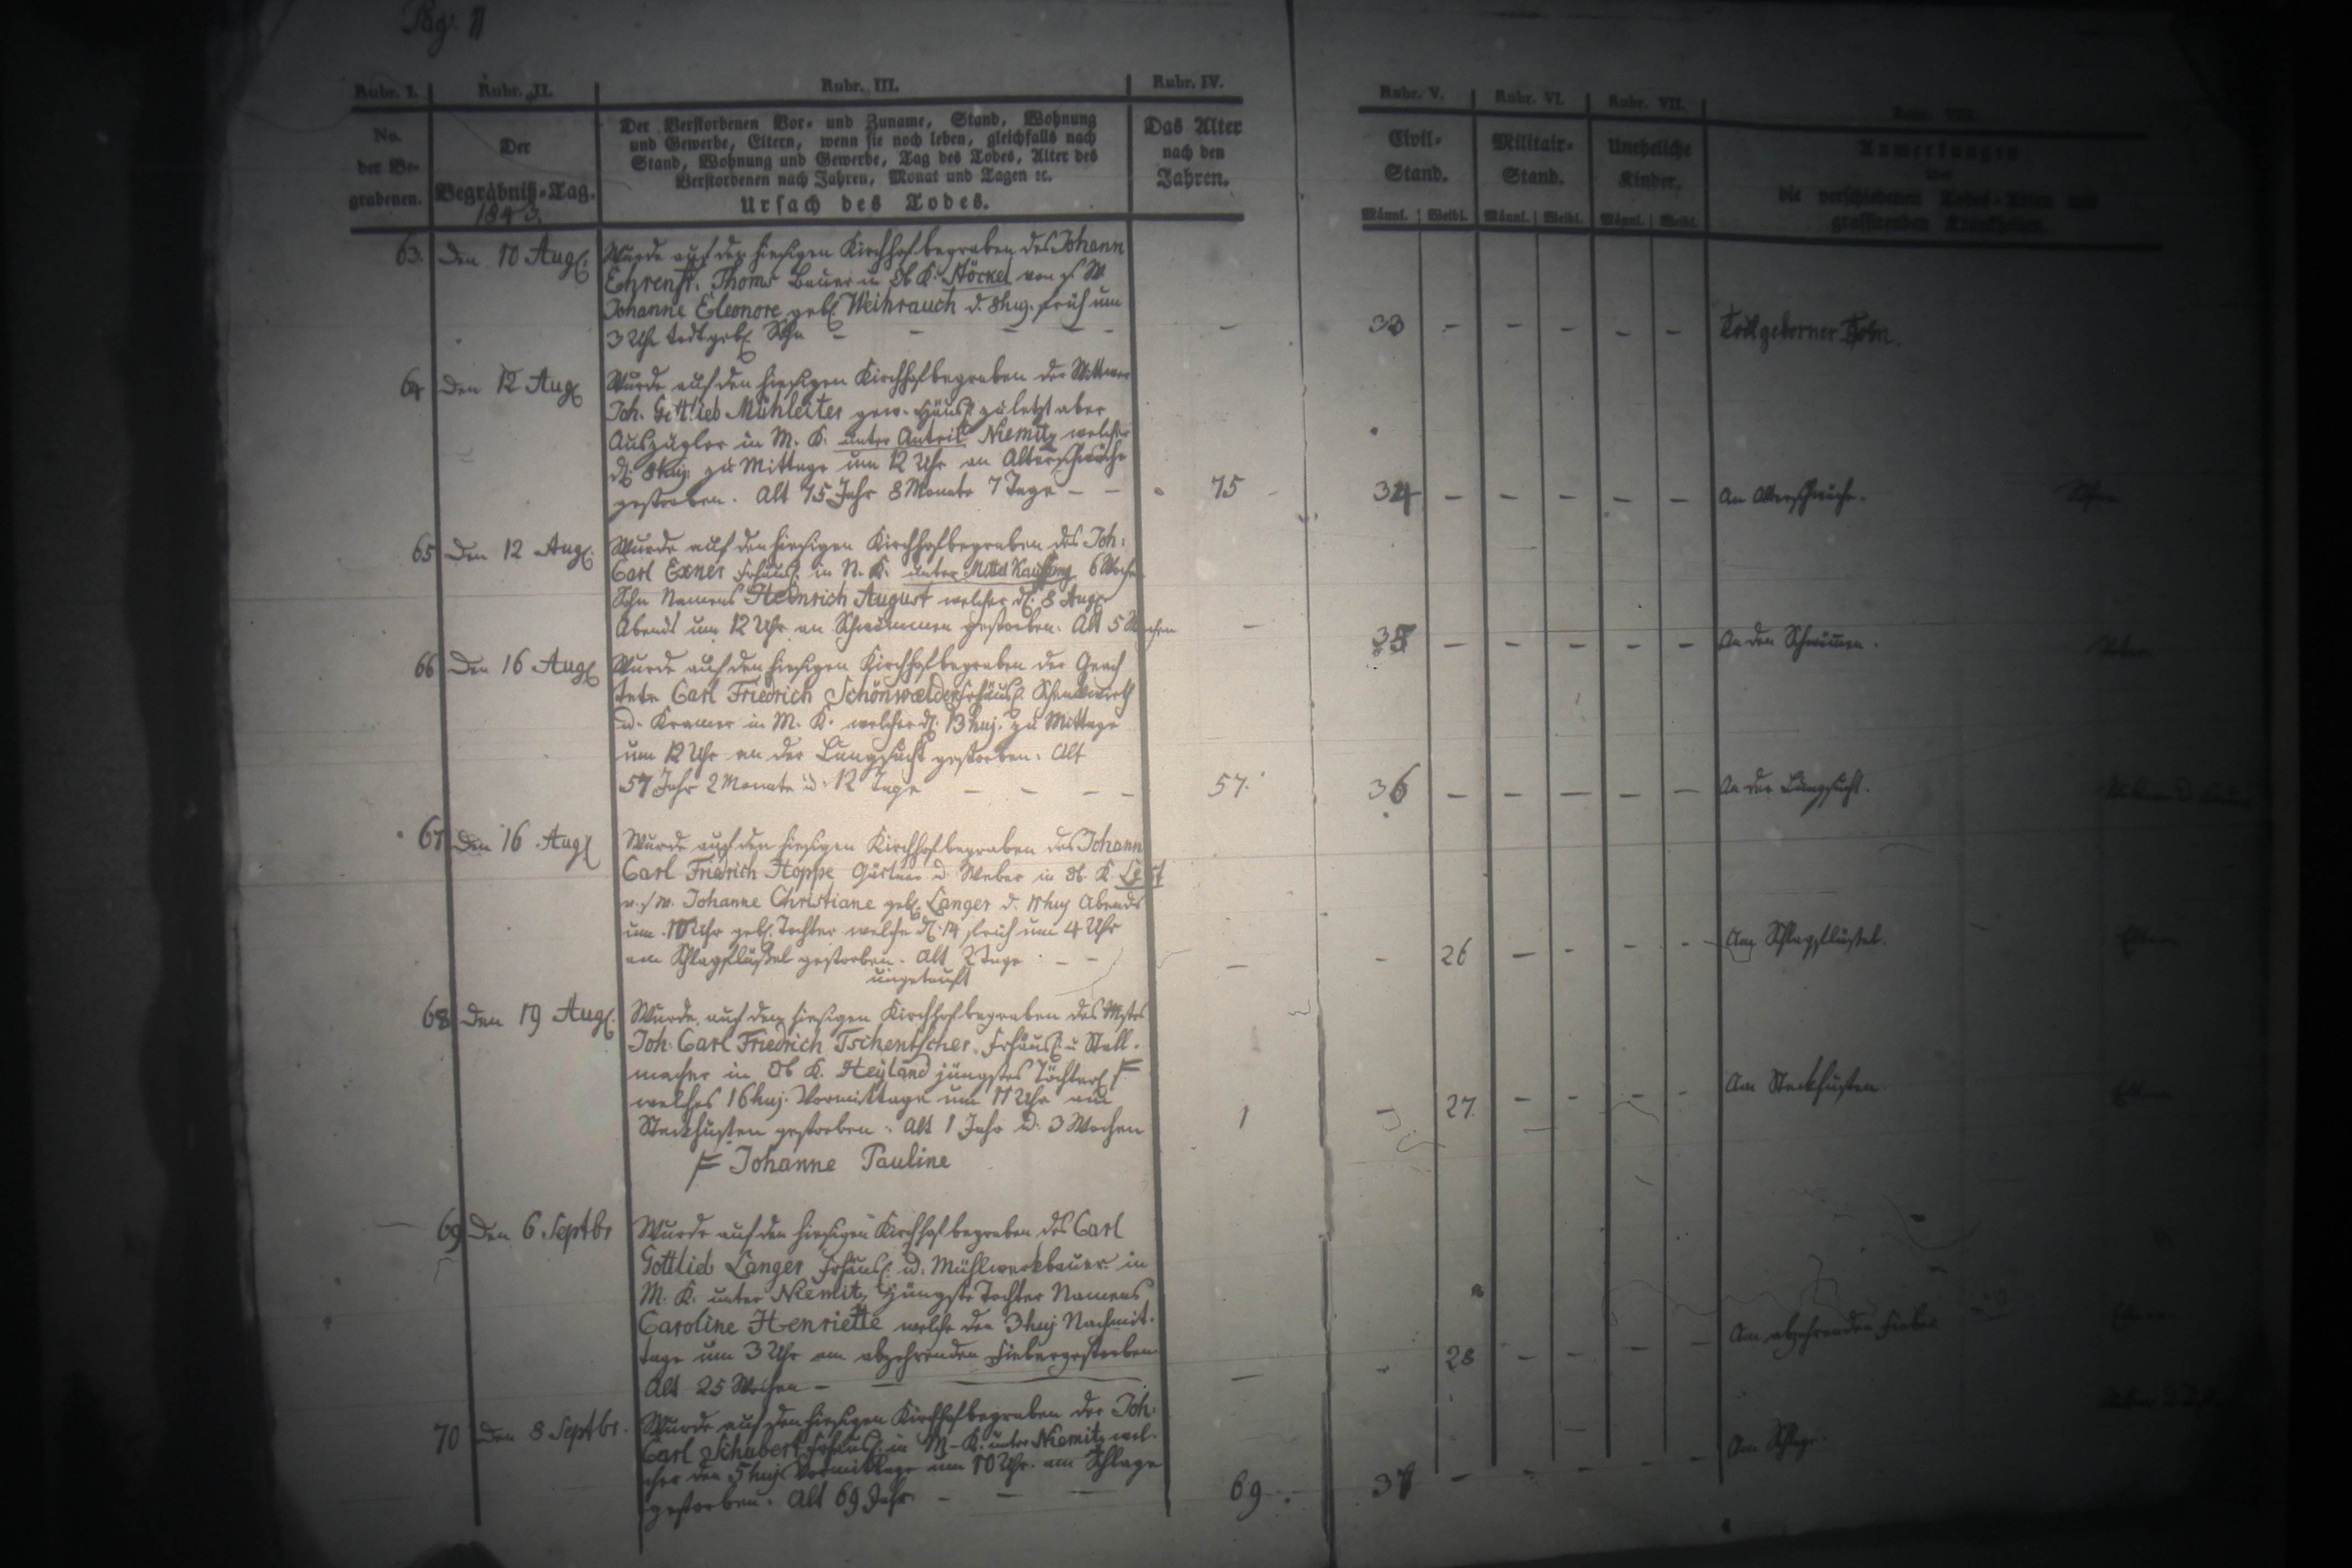 Pag. 11
Rubr. I. Rubr. II. Rubr. III. Rubr. IV. Rubr. V. Rubr. VI. Rubr. VII. Rubr. VIII.
No.
der Be-
grabenen.
Der
Begräbniß-Tag.
1843.
Der Verstorbenen Vor- und Zuname, Stand, Wohnung
und Gewerbe, Eltern, wenn sie noch leben, gleichfalls nach
Stand, Wohnung und Gewerbe, Tag des Todes, Alter des
Verstorbenen nach Jahren, Monat und Tagen ꝛc.
Ursach des Todes.
Das Alter
nach den
Jahren.
Civil-
Stand.
Männl. Weibl.
Militair-
Stand.
Männl. Weibl.
Uneheliche
Kinder.
Männl. Weibl.
Anmerkungen
die verschiedenen Todes-Arten und
grassirenden Krankheiten.
63. Den 10 Aug. Wurde auf den hiesigen Kirchhof begraben des Johann
Ehrenfr. Thoms Bauer in Ob K. Stöckel von s. W.
Johanne Eleonore geb. Weihrauch d. 8 huj. früh um
3 Uhr todtgeb. Sohn – – – – – 33 – – – – – Todtgeborner Sohn.
64 Den 12 Aug Wurde auf den hiesigen Kirchhof begraben der Wittwer
Joh. Gottlieb Mühleiter gew. Häusl. zuletzt aber
Auszügler in M. K. unter Antril Niemitz welcher
d. 8 huj. zu Mittage um 12 Uhr an Altersschwäche
gestorben. Alt 75 Jahr 8 Monate 7 Tage – – 75 34 – – – – – An Altersschwäche.
65 Den 12 Aug. Wurde auf den hiesigen Kirchhof begraben des Joh:
Carl Exner Frhäusl. in N. K. unter Mittel Kauffung 6 Wochen
Sohn Namens Heinrich August welcher d. 8 Aug
Abends um 12 Uhr an Schwämmen gestorben. Alt 5 Wochen – 35 – – – – – An den Schwämen.
66 Den 16 Aug Wurde auf den hiesigen Kirchhof begraben der Geach
tete Carl Friedrich Schönwælder Frhäusl. Schenkwirth
u. Kramer in M. K. welcher d. 13 huj. zu Mittage
um 12 Uhr an der Lungsucht gestorben. Alt
57 Jahr 2 Monate u. 12 Tage – – – – 57. 36 – – – – – An der Lungsucht.
67 Den 16 Aug Wurde auf den hiesigen Kirchhof begraben des Johann
Carl Friedrich Hoppe Gärtner u. Weber in Ob. K. Lest
v. s. W. Johanne Christiane geb. Langer d. 11 huj Abends
um 10 Uhr geb. Tochter welche d. 14 früh um 4 Uhr
am Schlagflüßel gestorben. Alt 2 Tage – –
ungetauft – – 26 – – – – Am Schlagflüßel. Eltern
68 Den 19 Aug. Wurde auf den hiesigen Kirchhof begraben des Mstrs
Joh. Carl Friedrich Tschentscher, Frhäusl. u Stell-
macher in Ob K. Heyland jüngstes Töchterl. F
welches 16 huj. Vormittage um 11 Uhr am
Steckhusten gestorben. Alt 1 Jahr u. 3 Wochen 1 – 27. – – – – Am Steckhusten Eltern
F Johanne Pauline
69 Den 6 Septbr Wurde auf den hiesigen Kirchhof begraben des Carl
Gottlieb Langer Frhäusl. u. Mühlwerkbauer in
M. K. unter Niemitz jüngste Tochter Namens
Caroline Henriette welche den 3 huj Nachmit-
tage um 3 Uhr am abzehrenden Fieber gestorben
Alt 25 Wochen – – – – 28 – – – – Am abzehrenden Fieber
70 Den 8 Septbr. Wurde auf den hiesigen Kirchhof begraben der Joh.
Carl Schubert Frhäusl. in M-K. unter Niemitz wel-
cher den 5 huj Vormittage um 10 Uhr am Schlage
gestorben. Alt 69 Jahr. – – – 69. 37 – – – – – Am Schlage.